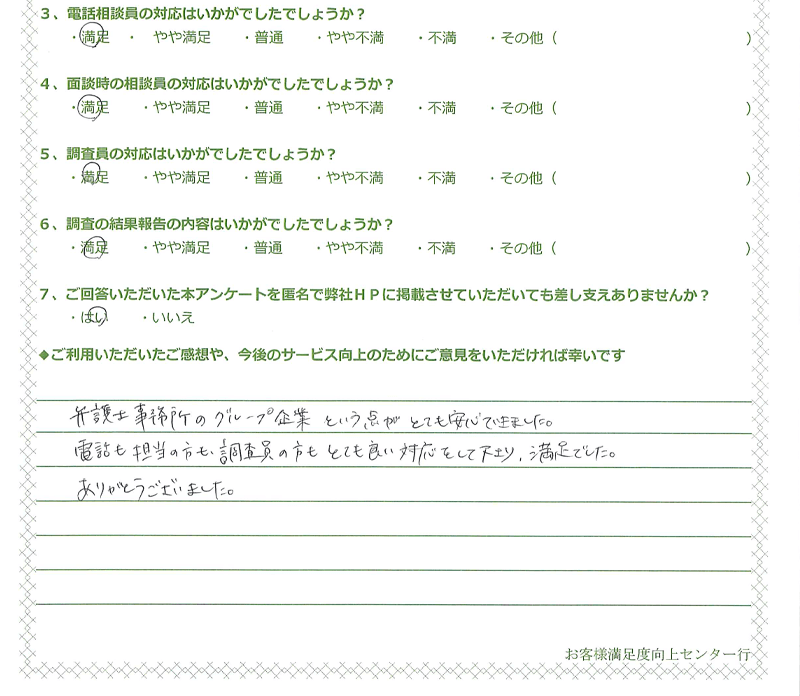 3、電話相談員の対応はいかがでしたでしょうか？
・満足 ・ やや満足 ・普通 ・やや不満 ・不満 ・その他（ ）
4、面談時の相談員の対応はいかがでしたでしょうか？
・満足 ・やや満足 ・普通 ・やや不満 ・不満 ・その他（ ）
5、調査員の対応はいかがでしたでしょうか？
・満足 ・やや満足 ・普通 ・やや不満 ・不満 ・その他（ ）
6、調査の結果報告の内容はいかがでしたでしょうか？
・満足 ・やや満足 ・普通 ・やや不満 ・不満 ・その他（ ）
7、ご回答いただいた本アンケートを匿名で弊社ＨＰに掲載させていただいても差し支えありませんか？
・はい ・いいえ
◆ご利用いただいたご感想や、今後のサービス向上のためにご意見をいただければ幸いです
弁護士事務所のグループ企業という点がとても安心できました。
電話も担当の方も、調査員の方もとても良い対応をして下さり、満足でした。
ありがとうございました。
お客様満足度向上センター行